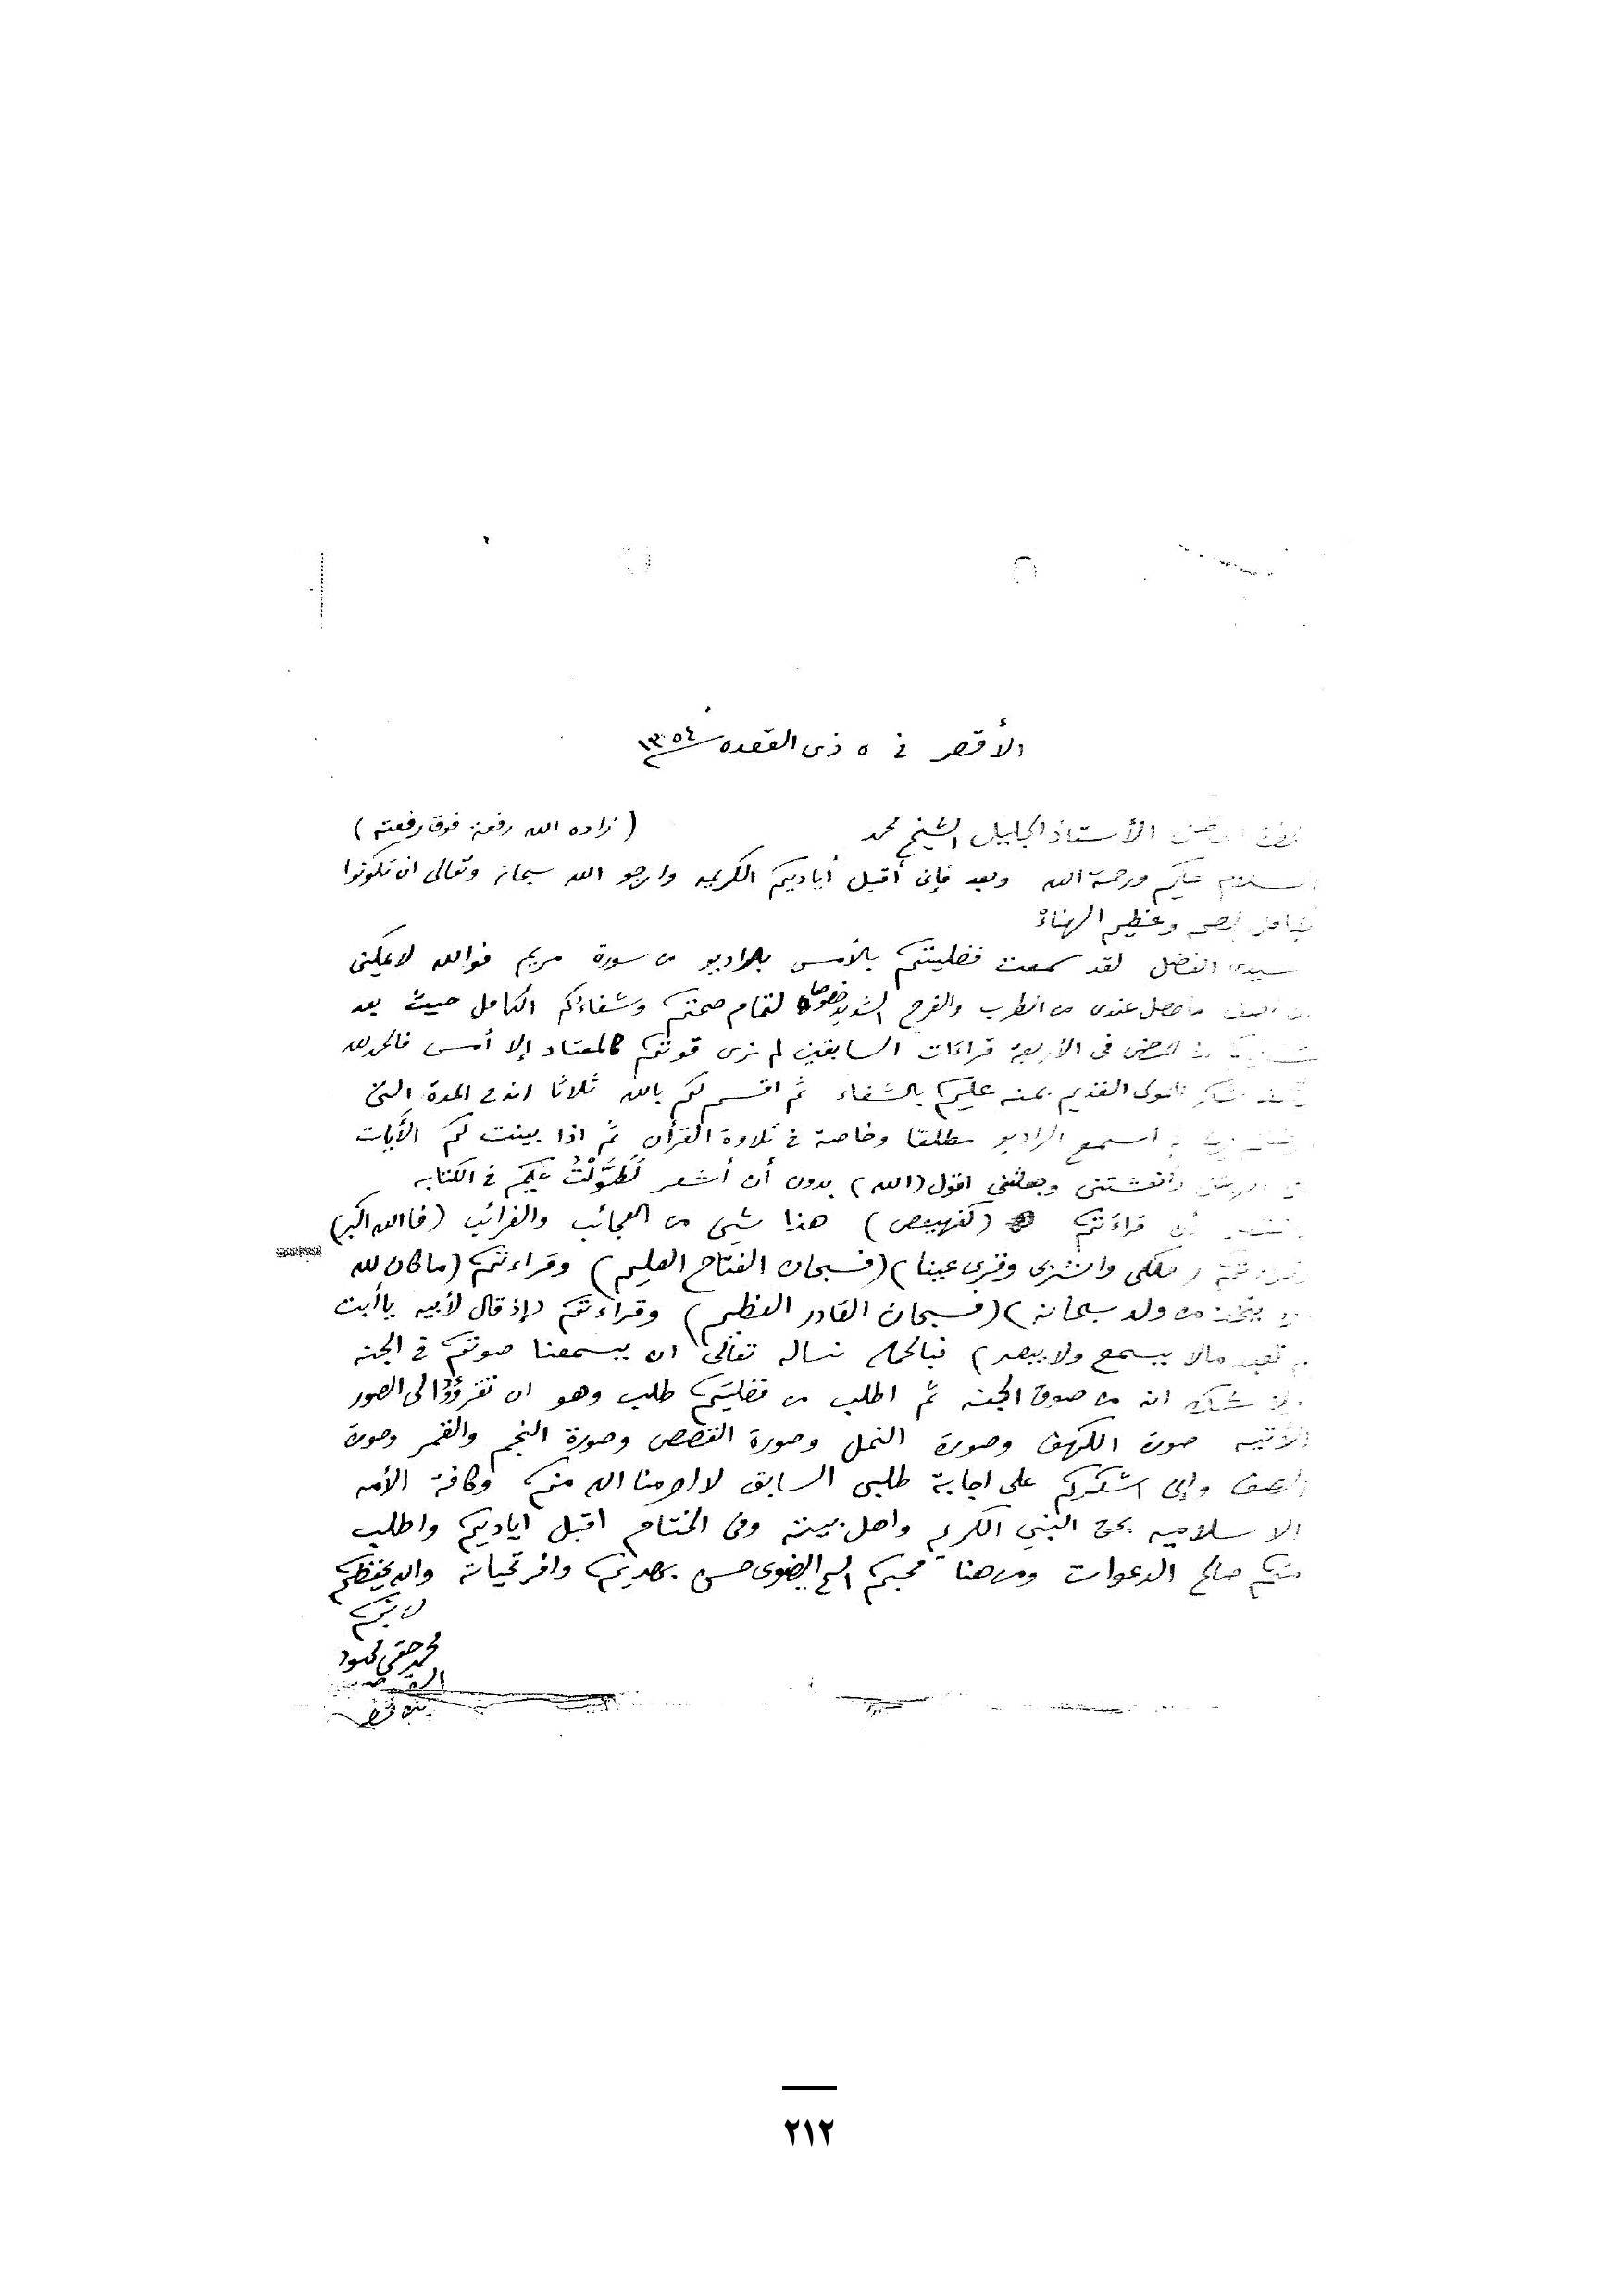 الأقصر فى ٥ ذى القعده ١٣٥٤
الأستاذ الجليل الشيخ محمد (زاده الله رفعة فوق رفعته)
السلام عليكم ورحمة الله وبعد فإنى أقبل أياديكم الكريمه وارجو الله سبحانه وتعالى ان تكونوا
وعظيم الهناء
سيدى الفضل لقد سمعت فضليتكم بالأمس بالراديو من سورة مريم فوالله لا يمكنى
ما حصل عندى من الطرب والفرح الشديد خصوصا لتمام صحتكم وشفاءكم الكامل حيث بعد
المرض فى الأربعة قراءات السابقين لم نرى قوتكم كالمعتاد إلا أمس فالحمد لله
المولى القديم بمنه عليكم بالشفاء ثم اقسم لكم بالله ثلاثا انه فى المدة التى
اسمع الراديو مطلقا وخاصة فى تلاوة القرأن ثم اذا بينت لكم الأيات
وأنعشتنى وجعلتنى اقول (الله) بدون أن أشعر لَطَوَّلْتُ عليكم فى الكتابه
أن قراءتكم (كهيعص) هذا شيئ من العجائب والغرائب (فاالله اكبر)
(فكلى واشربى وقرى عينا) (فسبحان الفتاح العليم) وقراءتكم (ما كان لله
يتخذ من ولد سبحانه) (فسبحان القادر العظيم) وقراءتكم (إذ قال لأبيه ياأبت
لم تعبد مالا يسمع ولا يبصر) نساله تعالى ان يسمعنا صوتكم فى الجنه
ولا شك انه من صوت الجنه ثم اطلب من فضليتكم طلب وهو ان تقرؤا لى الصور
الأتيه صورة الكهف وصورة النمل وصورة القصص وصورة النجم والقمر وصورة
الصف وإنى اشكركم على اجابة طلبى السابق لا احرمنا الله منكم وكافة الأمه
الاسلاميه بحق النبى الكريم واهل بيته وفى الختام اقبل اياديكم واطلب
منكم صالح الدعوات ومن هنا محبكم حسن يهديكم وافر تحياته والله يحفظكم
محمد حقى محمود
٢١٢